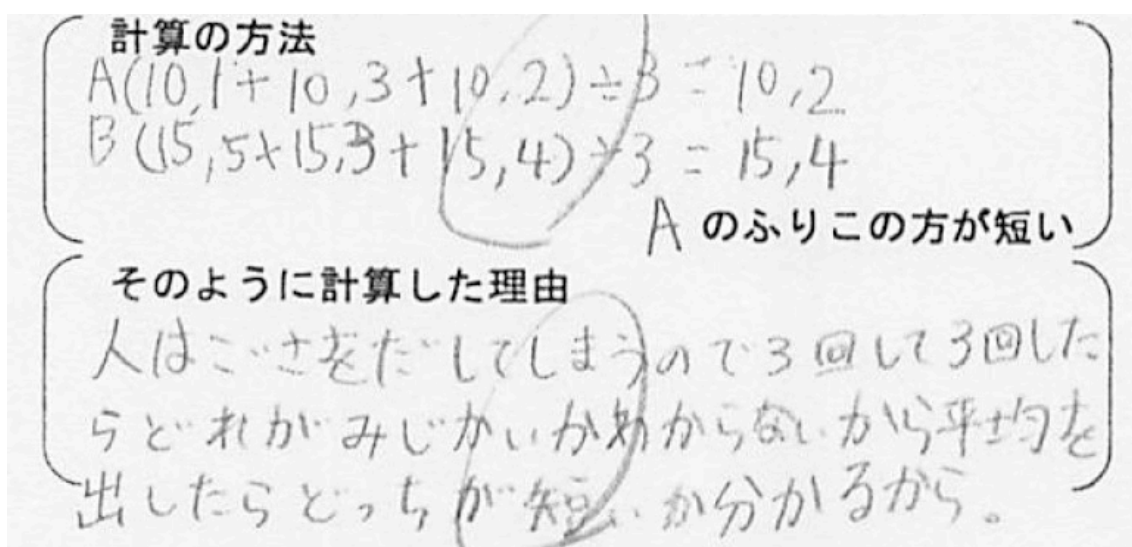 計算の方法
A(10,1+10,3+10,2)÷3=10,2
B(15,5+15,3+15,4)÷3=15,4
Aのふりこの方が短い
そのように計算した理由
人はごさをだしてしまうので3回して3回した
らどれがみじかいかわからないから平均を
出したらどっちが短いか分かるから。